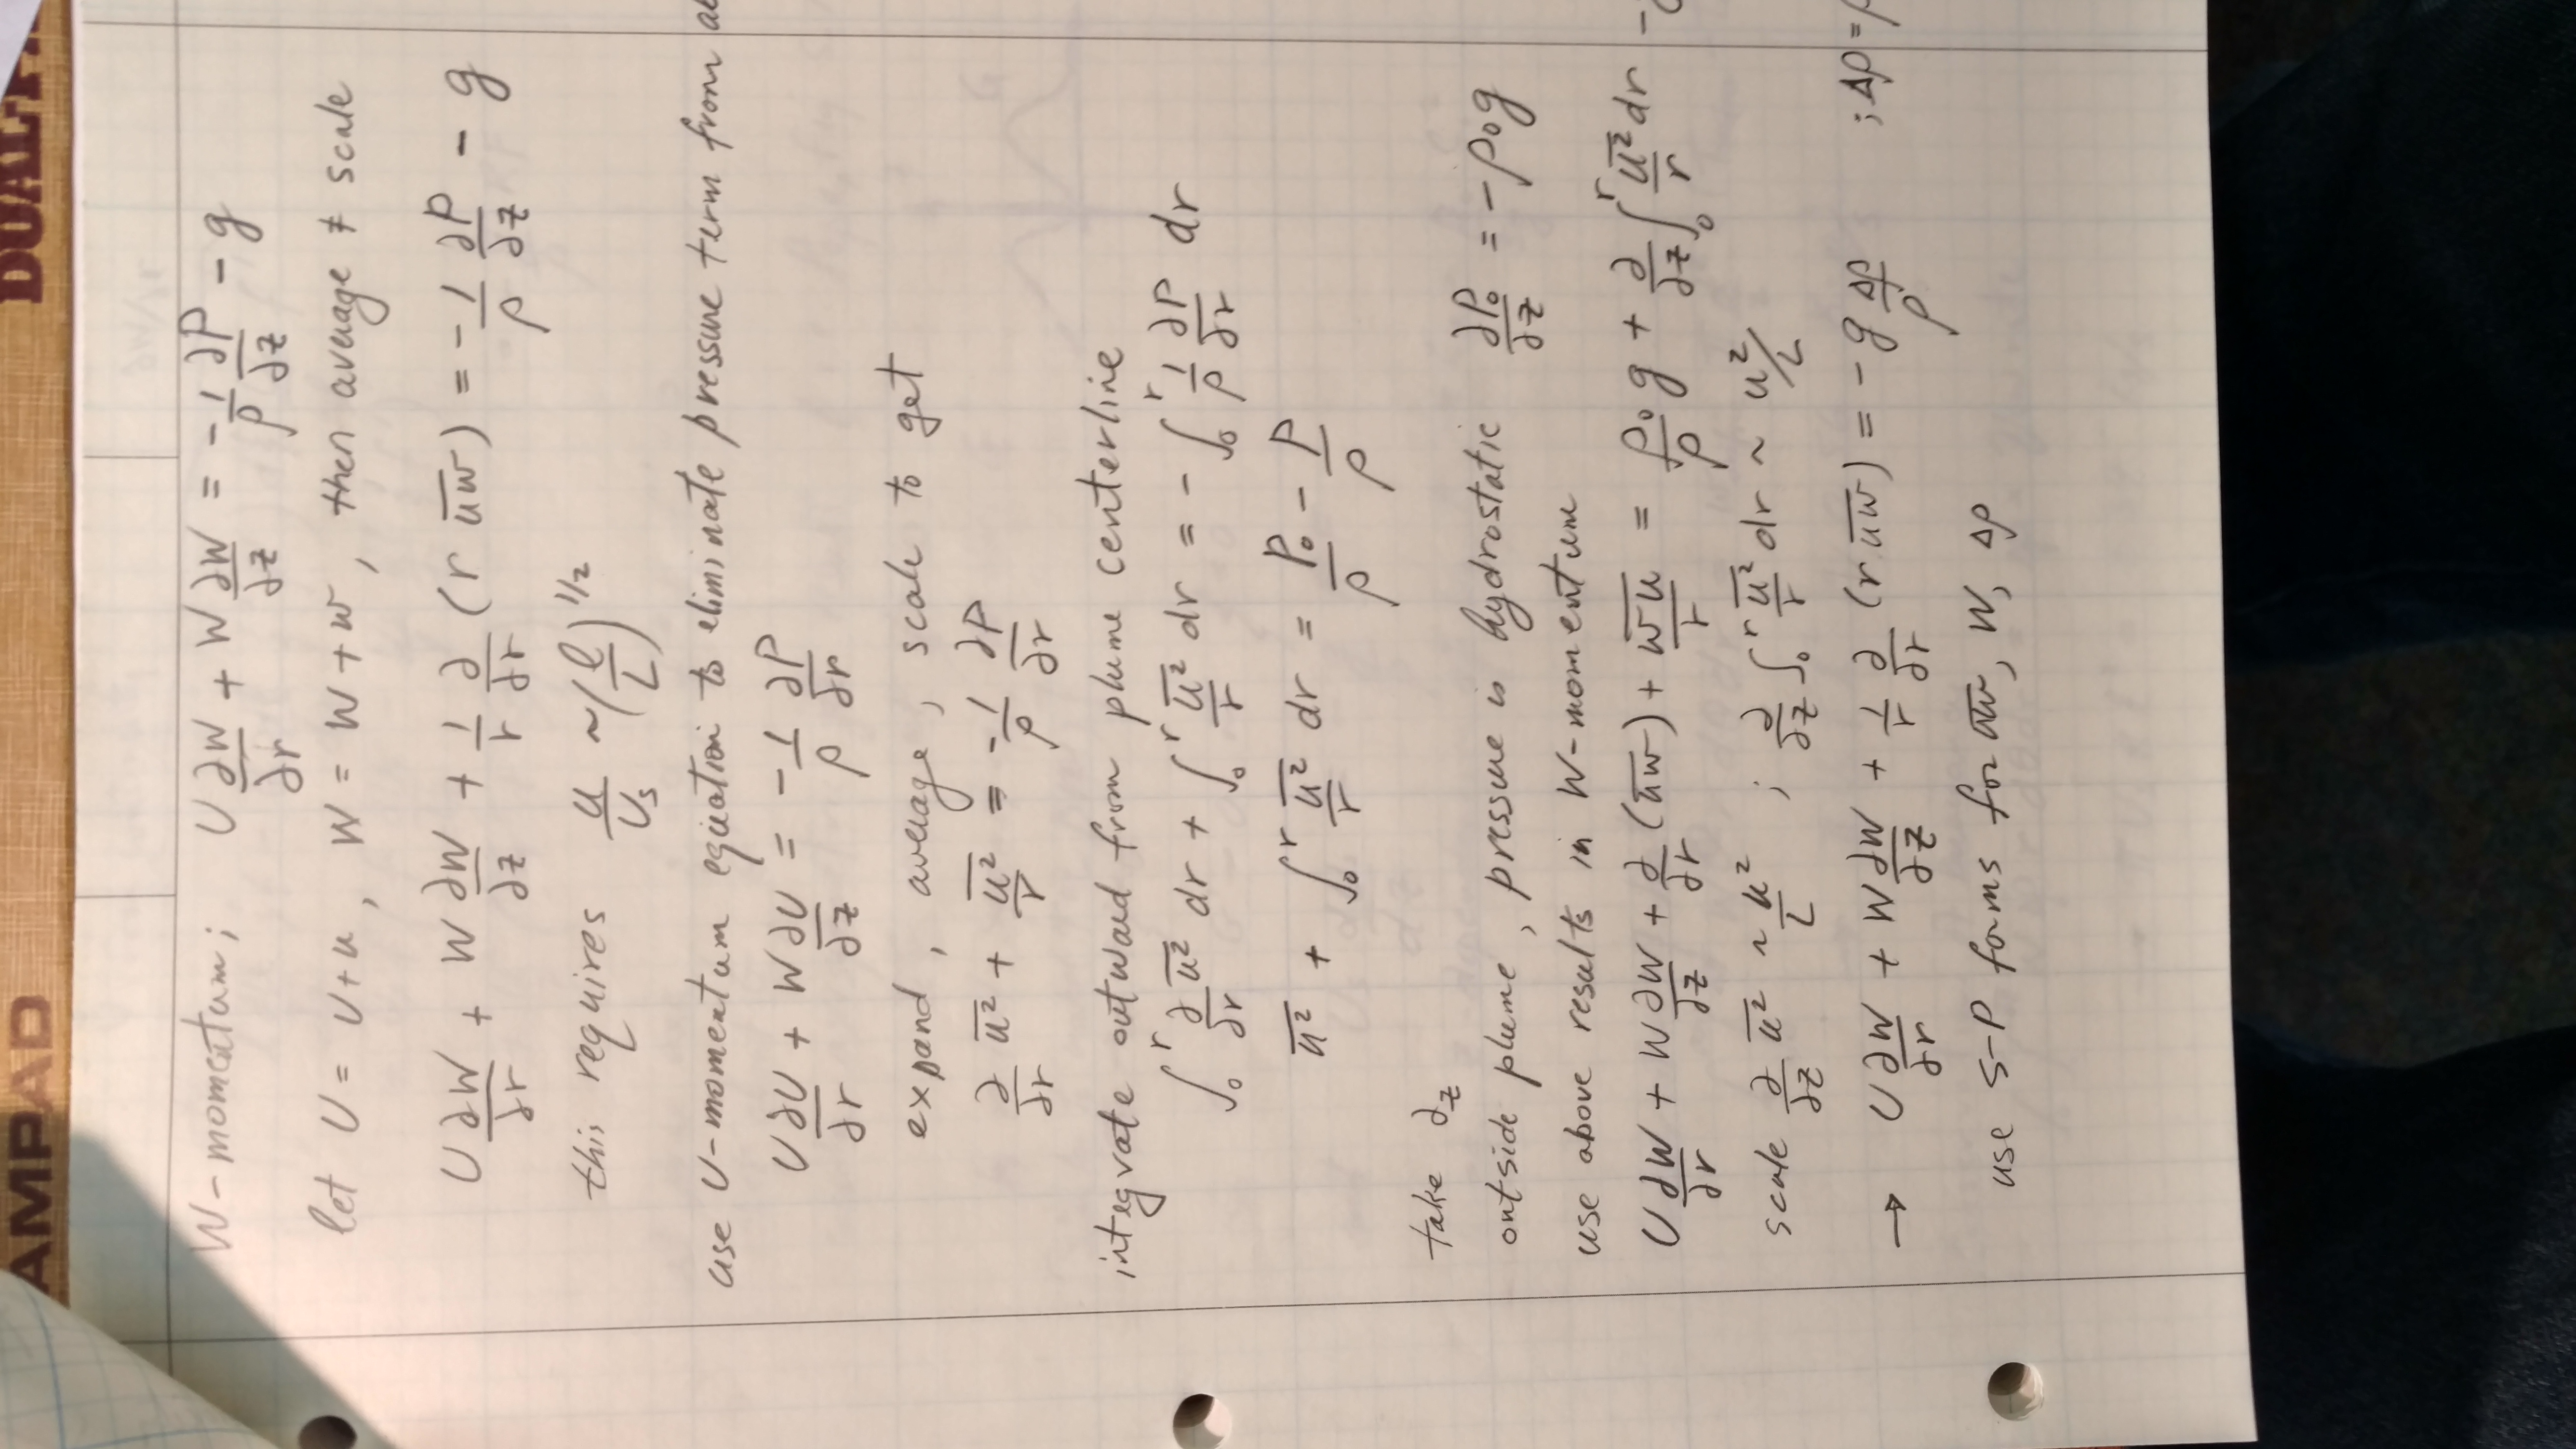 AMPAD DUAL-P
W-momentum; U ∂W/∂r + W ∂W/∂z = -1/ρ ∂P/∂z - g
let U = U+u, W = W+w, then average & scale
U ∂W/∂r + W ∂W/∂z + 1/r ∂/∂r (r u̅w̅) = -1/ρ ∂P/∂z - g
this requires u/Us ~ (l/L)^1/2
use U-momentum equation to eliminate pressure term from
U ∂U/∂r + W ∂U/∂z = -1/ρ ∂P/∂r
expand, average, scale to get
∂/∂r u̅² + u̅²/r = -1/ρ ∂P/∂r
integrate outward from plume centerline
∫₀^r ∂/∂r u̅² dr + ∫₀^r u̅²/r dr = -∫₀^r 1/ρ ∂P/∂r dr
u̅² + ∫₀^r u̅²/r dr = P₀/ρ - P/ρ
take ∂z
outside plume, pressure is hydrostatic ∂P₀/∂z = -ρ₀g
use above results in W-momentum
U ∂W/∂r + W ∂W/∂z + ∂/∂r (u̅w̅) + w̅u̅/r = ρ₀/ρ g + ∂/∂z ∫₀^r u̅²/r dr -
scale ∂/∂z u̅² ~ u²/L ; ∂/∂z ∫₀^r u̅²/r dr ~ u²/L
→ U ∂W/∂r + W ∂W/∂z + 1/r ∂/∂r (r u̅w̅) = -g Δρ/ρ ; Δρ =
use S-P forms for u̅w̅, W, Δρ